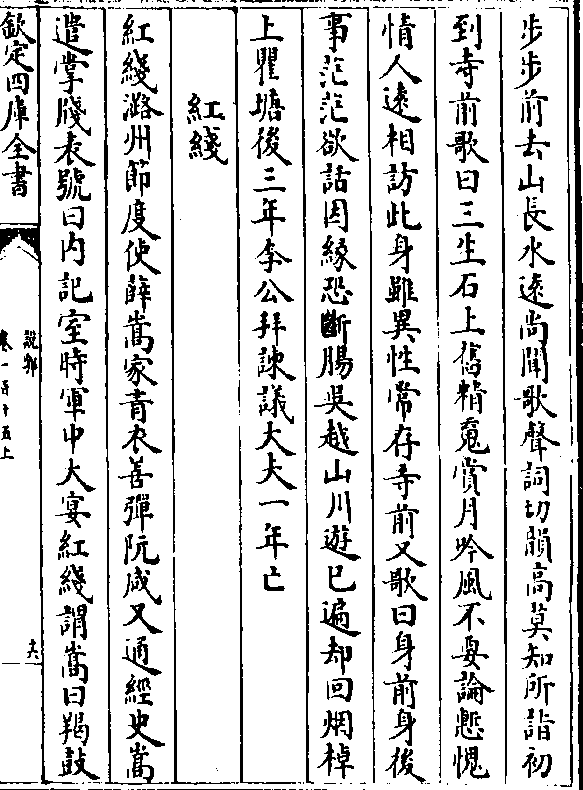 步步前去山長水逺尚聞歌聲詞切韻高莫知所詣初
到寺前歌曰三生石上舊精䰟賞月吟風不要論慙愧
情人逺相訪此身雖異性常存寺前又歌曰身前身後
事茫茫欲話因緣恐斷腸吳越山川遊已遍却回烟棹
上瞿塘後三年李公拜諫議大夫一年亡
紅綫
紅綫潞州節度使薛嵩家青衣善彈阮咸又通經史嵩
遣掌牋表號曰内記室時軍中大宴紅綫謂嵩曰羯鼓
欽定四庫全書
說郛
卷一百十五上
十六